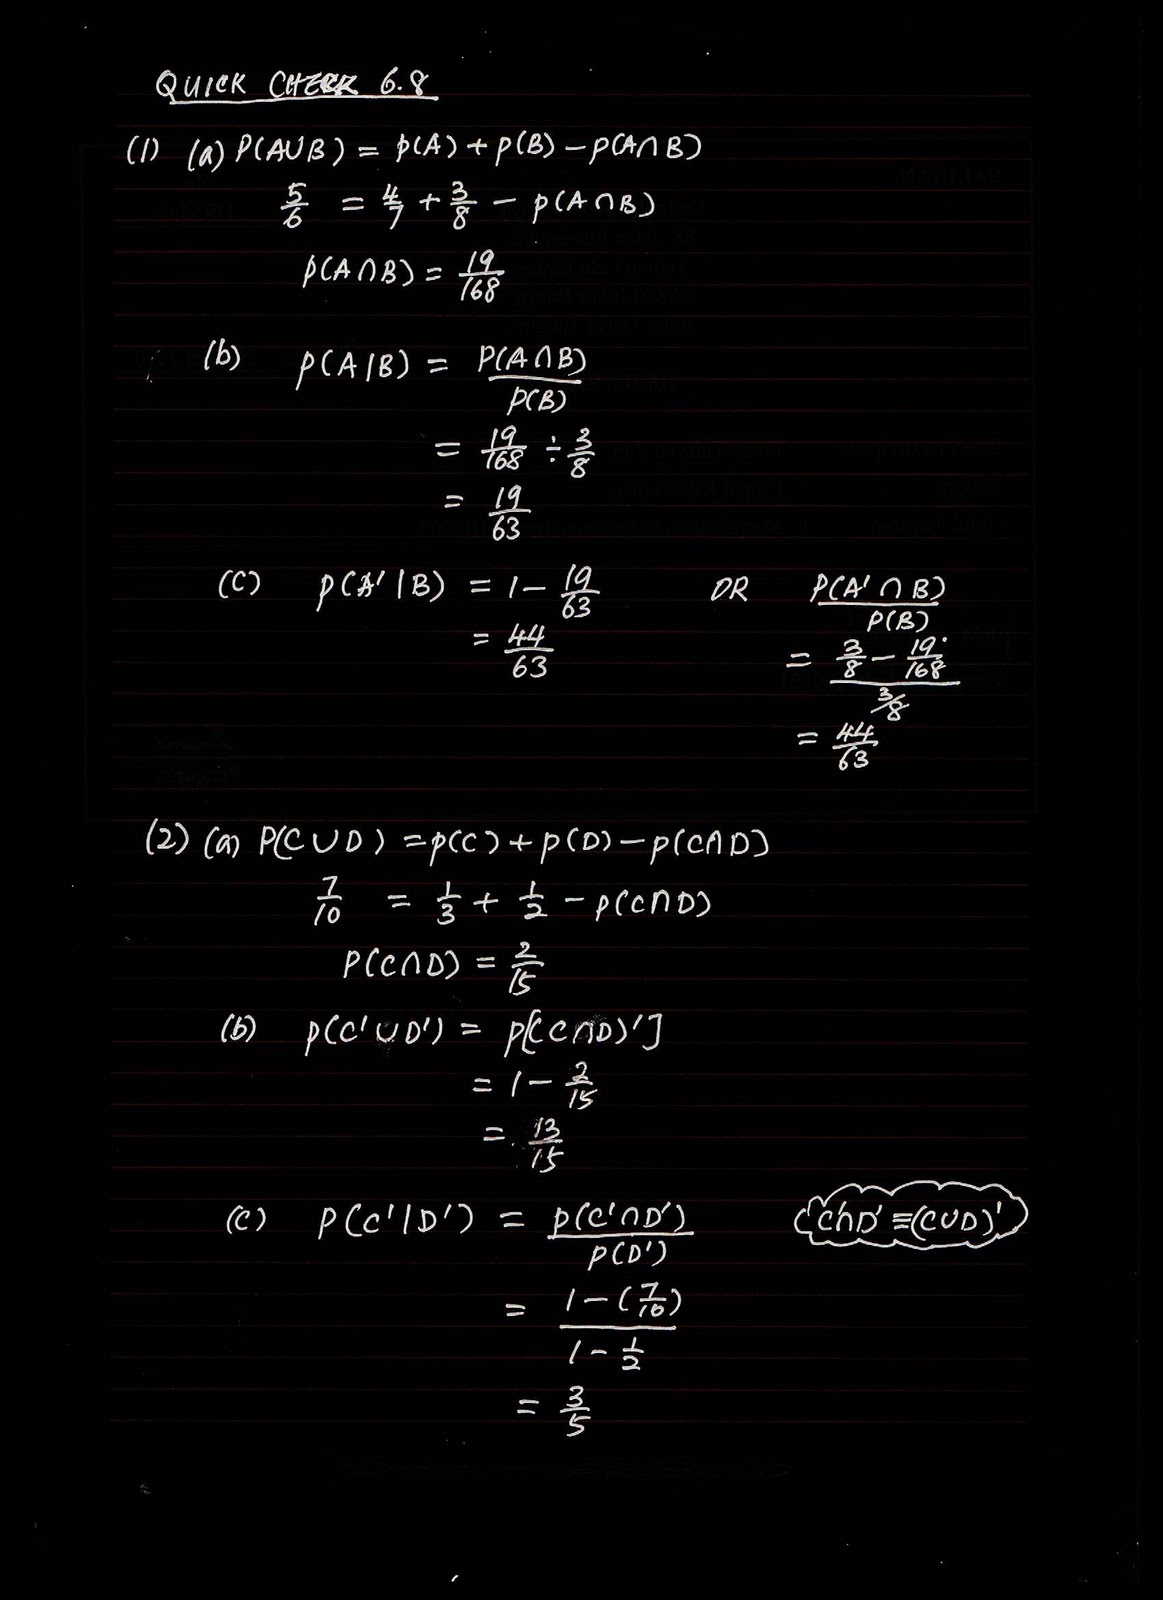 QUICK CHECK 6.8
(1) (a) P(A∪B) = P(A) + P(B) − P(A∩B)
5/6 = 4/7 + 3/8 − P(A∩B)
P(A∩B) = 19/168
(b) P(A|B) = P(A∩B)/P(B)
= 19/168 ÷ 3/8
= 19/63
(c) P(A'|B) = 1 − 19/63 OR P(A'∩B)/P(B)
= 44/63 = (3/8 − 19/168)/(3/8)
= 44/63
(2) (a) P(C∪D) = P(C) + P(D) − P(C∩D)
7/10 = 1/3 + 1/2 − P(C∩D)
P(C∩D) = 2/15
(b) P(C'∪D') = P[(C∩D)']
= 1 − 2/15
= 13/15
(c) P(C'|D') = P(C'∩D')/P(D') C'∩D' ≡ (C∪D)'
= (1 − (7/10))/(1 − 1/2)
= 3/5